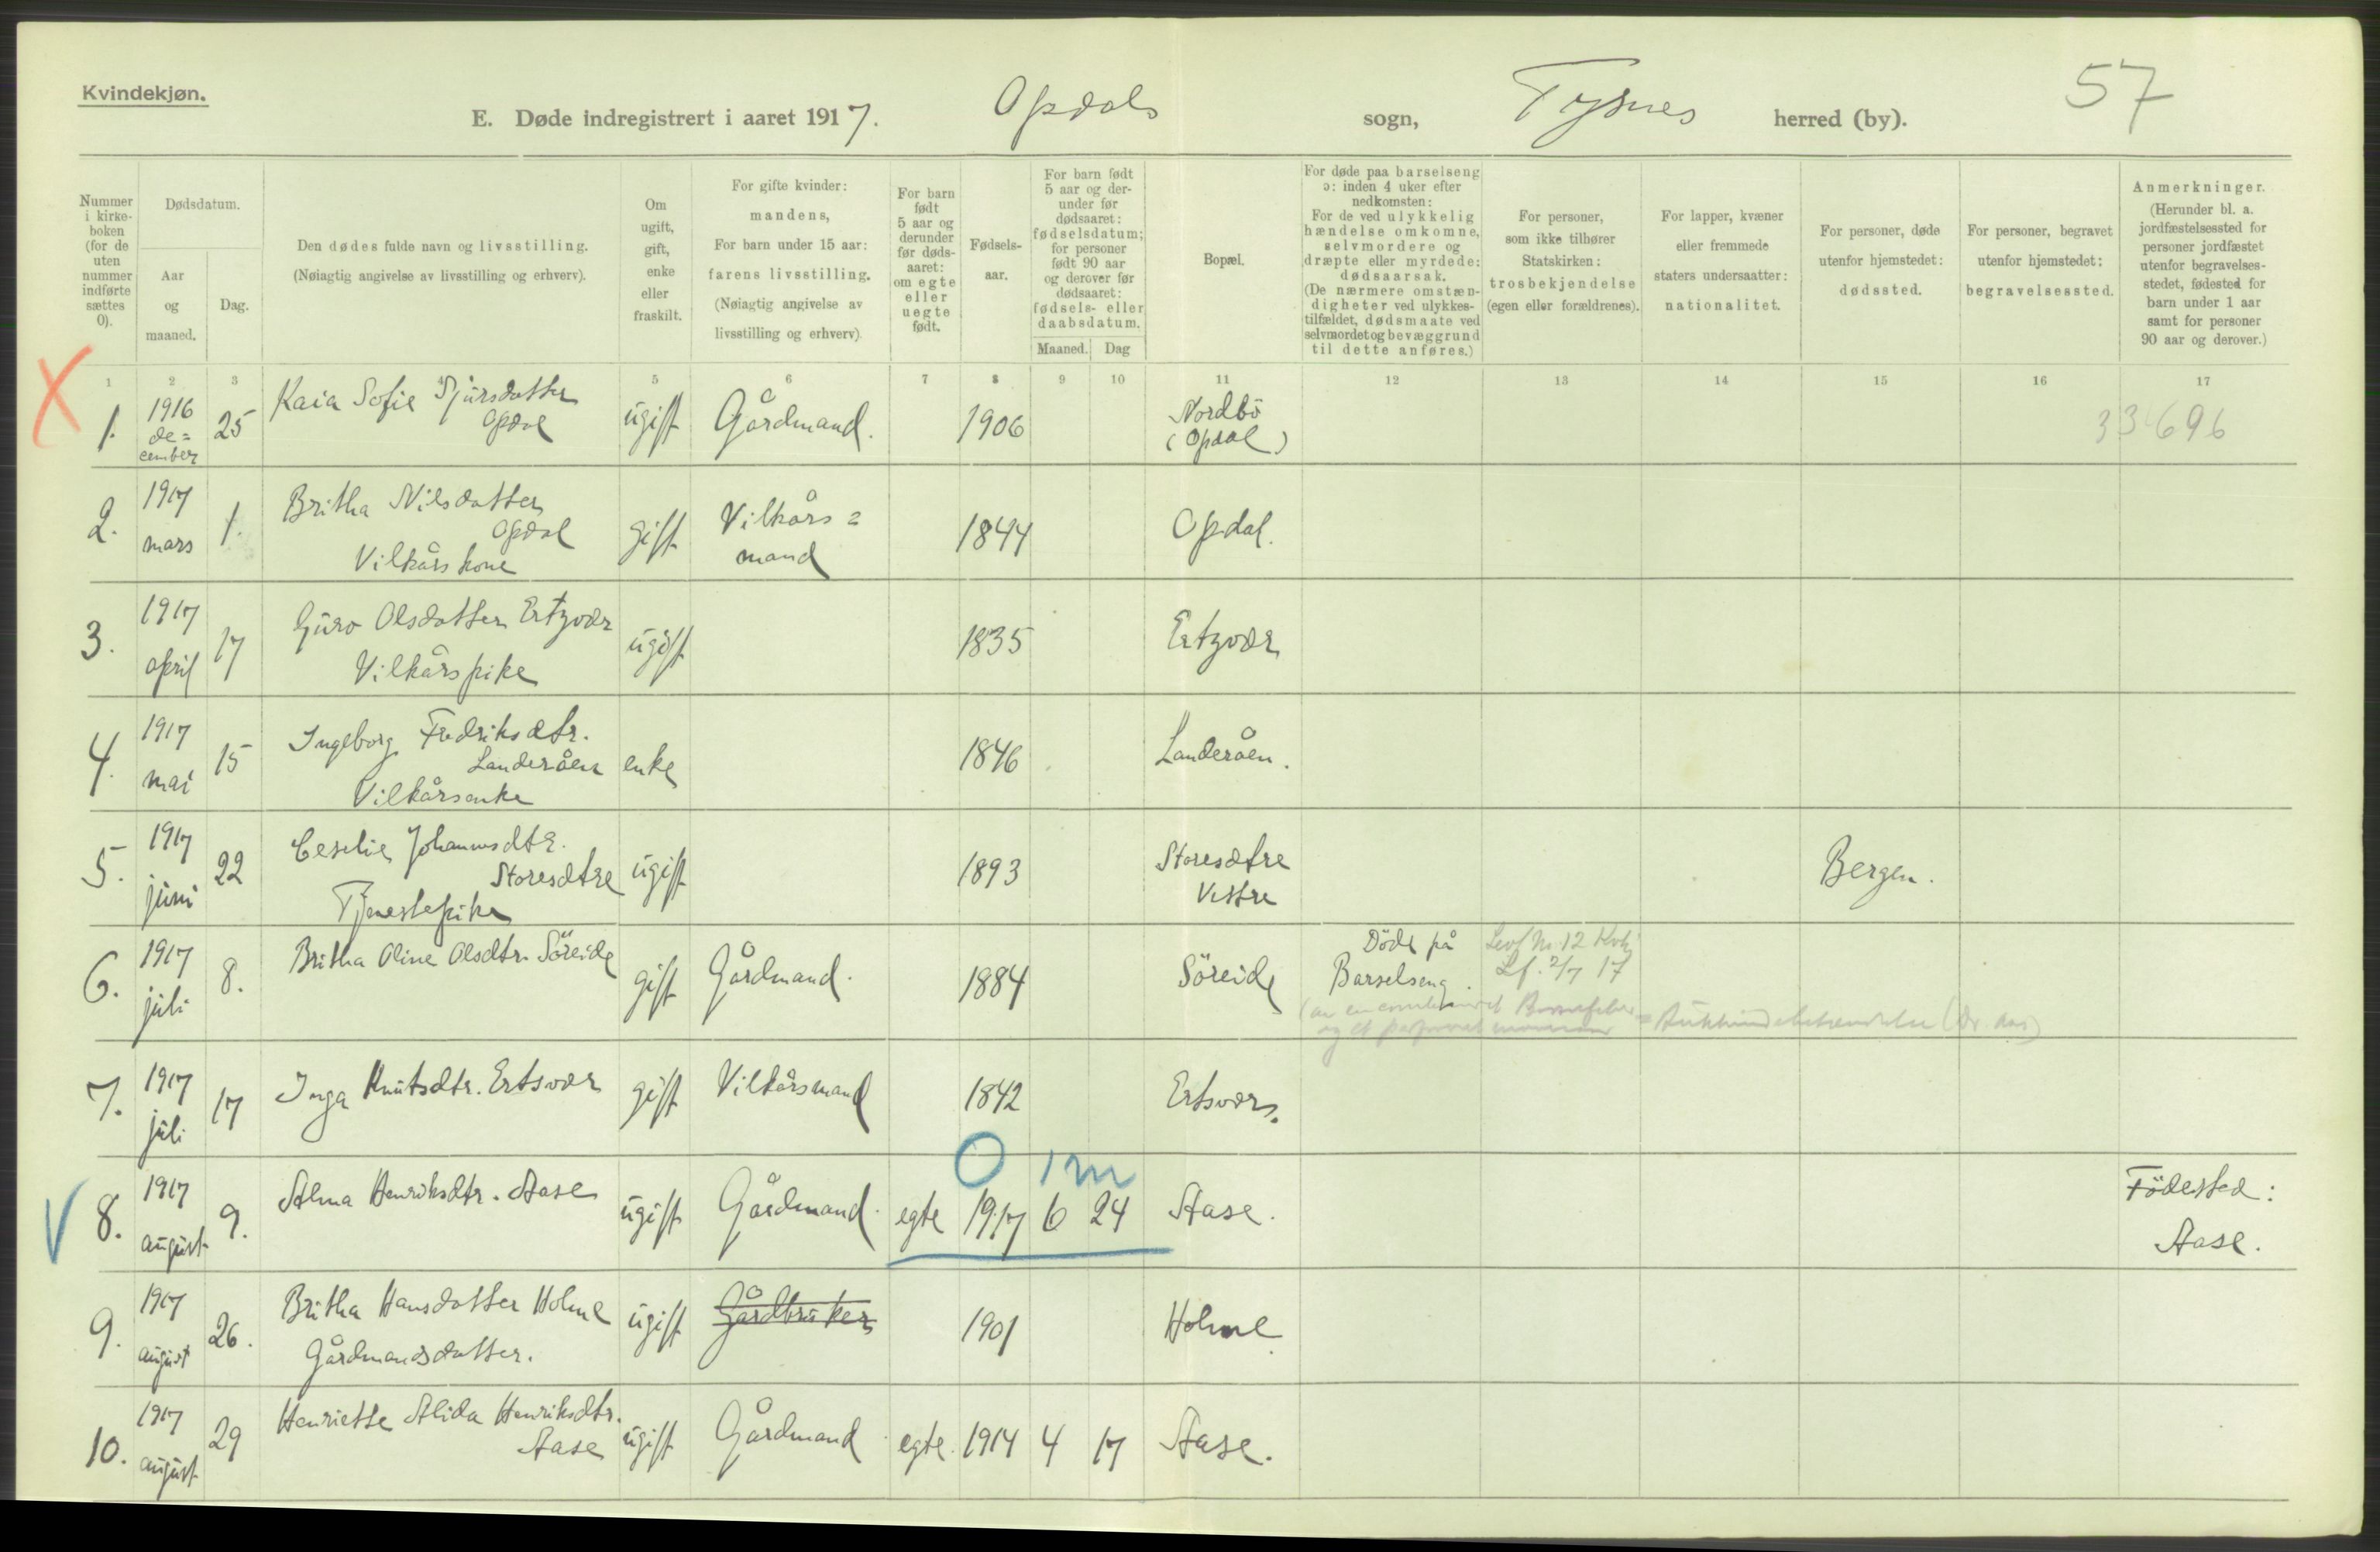 Kvindekjøn.
E. Døde indregistrert i aaret 1917. Opdals sogn, Tysnes herred (by). 57
Nummer i kirke-boken (for de uten nummer indførte sættes 0).
Dødsdatum.
Aar og maaned.
Dag.
Den dødes fulde navn og livsstilling.
(Nøiagtig angivelse av livsstilling og erhverv).
Om ugift, gift, enke eller fraskilt.
For gifte kvinder: mandens,
For barn under 15 aar: farens livsstilling.
(Nøiagtig angivelse av livsstilling og erhverv).
For barn født 5 aar og derunder før døds-aaret: om egte eller uegte født.
Fødsels-aar.
For barn født 5 aar og der-under før dødsaaret: fødselsdatum; for personer født 90 aar og derover før dødsaaret: fødsels- eller daabsdatum.
Maaned. Dag
Bopæl.
For døde paa barselseng ɔ: inden 4 uker efter nedkomsten:
For de ved ulykkelig hændelse omkomne, selvmordere og dræpte eller myrdede: dødsaarsak.
(De nærmere omstæn-digheter ved ulykkes-tilfældet, dødsmaate ved selvmordet og bevæggrund til dette anføres.)
For personer, som ikke tilhører Statskirken: trosbekjendelse (egen eller forældrenes).
For lapper, kvæner eller fremmede staters undersaatter: nationalitet.
For personer, døde utenfor hjemstedet: dødssted.
For personer, begravet utenfor hjemstedet: begravelsessted.
Anmerkninger.
(Herunder bl. a. jordfæstelsessted for personer jordfæstet utenfor begravelses-stedet, fødested for barn under 1 aar samt for personer 90 aar og derover.)
1 2 3 4 5 6 7 8 9 10 11 12 13 14 15 16 17
X
1. 1916 de=cember 25 Kaia Sofie Sjursdatter Opdal ugift Gårdmand. 1906 Nordbö (Opdal) 33696
2. 1917 mars 1. Britha Nilsdatter Opdal Vilkårskone gift Vilkårs=mand 1844 Opdal.
3. 1917 april 17 Guro Olsdatter Ertzvær Vilkårspike ugift 1835 Ertzvær
4. 1917 mai 15 Ingeborg Fredriksdtr. Landeråen Vilkårsenke enke 1846 Landeråen.
5. 1917 juni 22 Ceselie Johannesdtr. Storesætre Tjenestepike ugift 1893 Storesætre Vestre Bergen.
6. 1917 juli 8. Britha Oline Olsdtr. Söreide gift Gårdmand. 1884 Söreide Döde på Barselseng. Lev. Nr. 12 Kvk. Lf. 2/7 17
7. 1917 juli 17 Inga Knutsdtr. Ertsvær gift Vilkårsmand 1842 Ertsvær.
0 1 m
V 8. 1917 august 9. Alma Henriksdtr. Aase ugift Gårdmand. egte 1917 6 24 Aase. Födested: Aase.
9. 1917 august 26. Britha Hansdatter Holme Gårdmandsdatter. ugift Gårdbruker 1901 Holme.
10. 1917 august 29 Henriette Alida Henriksdtr. Aase ugift Gårdmand egte. 1914 4 17 Aase.